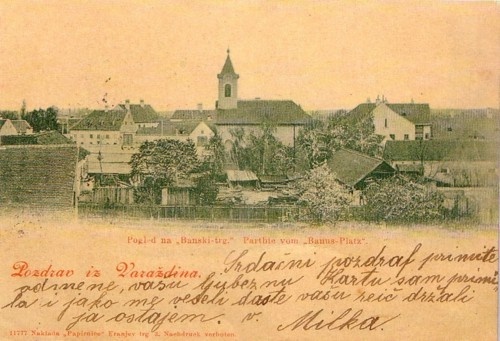 Pogled na „Banski-trg.“ Parthie vom „Banus-Platz“.
Pozdrav iz Varaždina.
Srdačni pozdraf primite
od mene, vašu ljubeznu Kartu sam primi
la i jako me veseli da ste vašu reič držali
ja ostajem. v. Milka.
11777 Naklada „Papirnice“ Franjev trg 3. Nachdruck verboten.